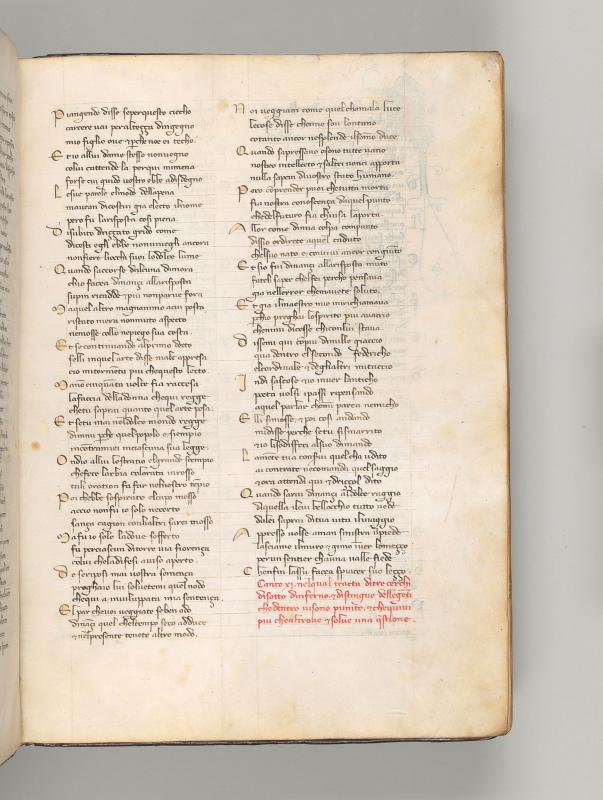 Piangendo disse seperquesto ciecho
carcere uai peraltezza dingegno
mio figlio oue e perche noe ei techo.
Et io allui dame stesso nonuegno
colui cattende la perqui mimena
forse cui guido uostro ebbe adisdegno
Lesue parole elmodo dellapena
mauean dicostui gia electo ilnome
pero fu larisposta cosi piena.
Disubito drizzato grido come
dicesti egli ebbe nonuiuegli ancora
nonfiere liocchi suoi lodolce lume
Quando saccorse dalcuna dimora
chio facea dinanzi allarisposta
supin ricadde et piu nonparue fora
Ma quel altro magnanimo acui posta
ristato mera nonmuto aspecto
nemosse collo nepiego sua costa.
Et se continuando alprimo decto
selli anquel arte disse male appresa
cio mitormenta piu chequesto lecto.
Ma no cinquanta uolte fia raccesa
lafaccia delladonna chequi regge
chetu saprai quanto quel arte pesa.
Et setu mai neldolce mondo regge
dimmi perche quel popolo e siempio
incontramei inciascuna sua legge
Ondio allui lostratio elgrande scempio
chefece larbia colorata inrosso
tale oration fa far nelnostro tepio
Poi chebbe sospirato elcapo mosso
accio nonfu io solo necerto
sanza cagion conlialtri sarei mosso
Ma fu io solo ladoue sofferto
fu perciascun ditorre uia fiorenza
colui cheladifesi auiso aperto.
De seriposi mai uostra semenza
pregha io lui soluetemi quel nodo
chequi a inuiluppata mia sentenza.
El par cheuoi ueggiate seben odo
dinanzi quel cheltempo seco adduce
et nelpresente tenete altro modo.
Noi ueggiam come quel chamala luce
lecose disse chenne son lontano
cotanto ancor nesplende ilsomo duce
Quando sapressano osono tutto uano
nostro intellecto et saltri nonci apporta
nulla sapem diuostro stato humano.
Pero comprender puoi chetutta morta
fia nostra conoscenza daquel punto
chedelfuturo fia chiusa laporta.
Allor come dimia colpa compunto
dissio ordirete aquel caduto
chelsuo nato e conuiui ancor congiunto
Et sio fui dinanzi allarisposta muto
fatel saper chelfei perche pensaua
gia nellerror chemauete soluto.
Et gia ilmaestro mio mirichiamaua
perchio preghai lospirito piu auaccio
chemmi dicesse chiconlui staua.
Dissemi qui conpiu dimille giaccio
qua dentro elsecondo federicho
elcardinale et deglialtri mitaccio
Indi sascose et io inuer lanticho
poeta uolsi ipassi ripensando
aquel parlar chemi parea nemicho
Elli simosse et poi cosi andando
midisse perche setu sismarrito
et io lisodisfeci alsuo dimando
La mente tua conserui quel cha udito
ai contrate necomandi quel saggio
et ora attendi qui et drizzol dito
Quando sarai dinanzi aldolce raggio
daquella ilcui bellocchio tutto uede
dalei saprai ditua uita iluiaggio
Appresso uolse aman sinistra ilpiede
lasciamo ilmuro et gimo iuer lomezzo
perun sentier chauna ualle fiede
Chenfin lassu facea spiacer suo lezzo
Canto xi. nelqual tracta ditre cerchi
disotto dinferno et distingue dellegenti
chedentro uisono punite. et chequiui
piu chealtroue et solue una questione.